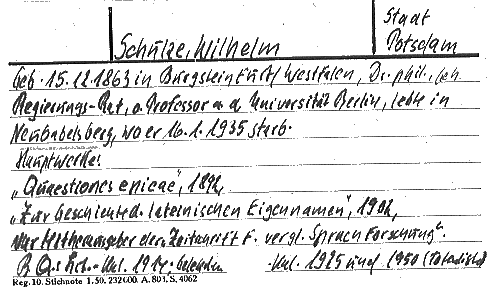 Stadt
Schulze, Wilhelm Potsdam
Geb. 15.12.1863 in Burgsteinfurt/Westfalen, Dr. phil., Geh.
Regierungs-Rat, o. Professor a. d. Universität Berlin, lebte in
Neubabelsberg, wo er 16.1.1935 starb.
Hauptwerke:
„Quaestiones epicae", 1892,
„Zur Geschichte d. lateinischen Eigennamen", 1904,
war Mitherausgeber der „Zeitschrift f. vergl. Sprachforschung".
1925 und 1950
Reg. 10. Stichnote 1. 50. 232000. A. 801. S. 4062